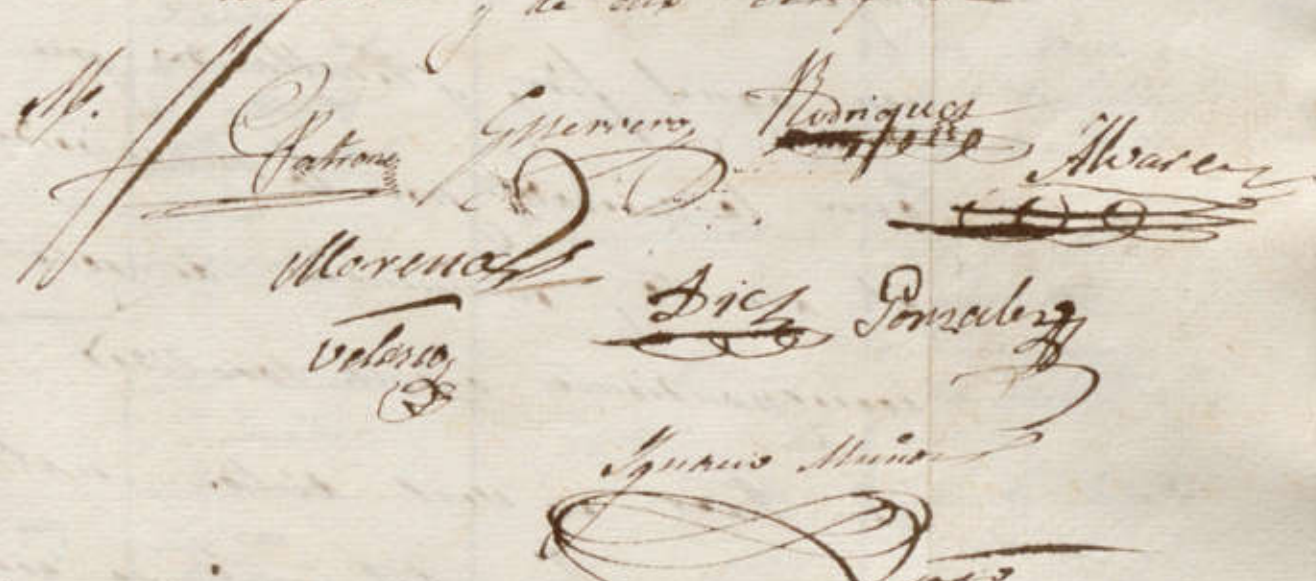 y de
M.
Patrone Guerrero Rodriguez Alvarez
Moreno Diez Gonzalez
Velasco
Ignacio Muñoz